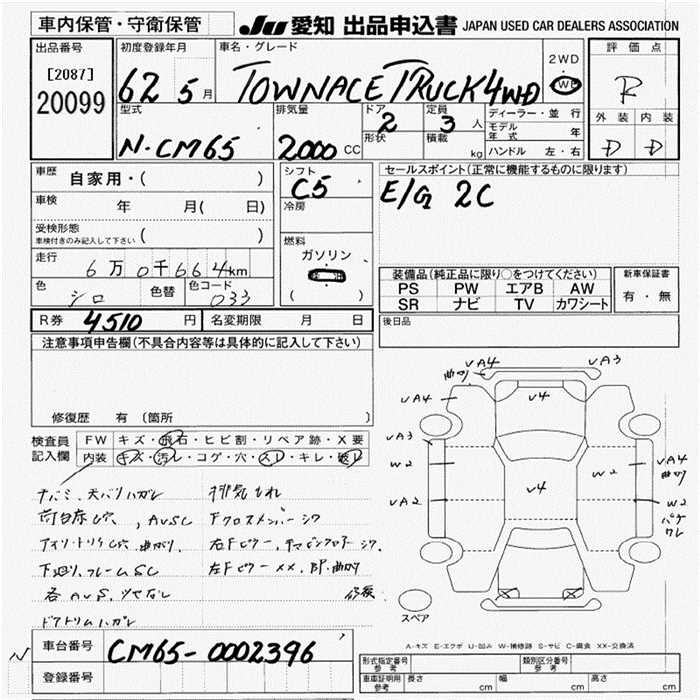 車内保管・守衛保管
JU 愛知 出品申込書 JAPAN USED CAR DEALERS ASSOCIATION
出品番号
[2087]
20099
初度登録年月
62 5月
車名・グレード
TOWNACE TRUCK 4WD
2WD
4WD
評価点
R
外装 内装
D D
型式
N-CM65
排気量
2000 CC
ドア
2
形状
定員
3 人
積載
kg
ディーラー・並行
モデル年式 年
ハンドル 左・右
車歴 自家用・( )
車検 年 月( 日)
受検形態
車検付きのみ記入して下さい ( )
走行
6万0千664km
色
シロ
色替
色コード
033
シフト
C5
冷房
燃料
ガソリン
( )
セールスポイント(正常に機能するものに限ります)
E/G 2C
装備品(純正品に限り○をつけてください)
PS PW エアB AW
SR ナビ TV カワシート
新車保証書
有・無
R券 4510 円 名変期限 月 日
後日品
注意事項申告欄(不具合内容等は具体的に記入して下さい)
修復歴 有 (箇所
検査員記入欄
FW キズ・飛石・ヒビ割・リペア跡・X要
内装 キズ・汚レ・コゲ・穴・スレ・キレ・破レ
排気もれ
荷台床穴, AUSC
下廻り、フレームSC
ドアトリムハガレ
vA4 vA3
曲り
vA4
v4
vA3
W2 W2 vA4
曲り
v4
vA2 W2
スペア
A-キズ E-エクボ U-凹み W-補修跡 S-サビ C-腐食 XX-交換済
車台番号 CM65-0002396
登録番号
型式指定番号 参考
類別区分番号 参考
車庫証明用 参考 長さ cm 幅 cm 高さ cm